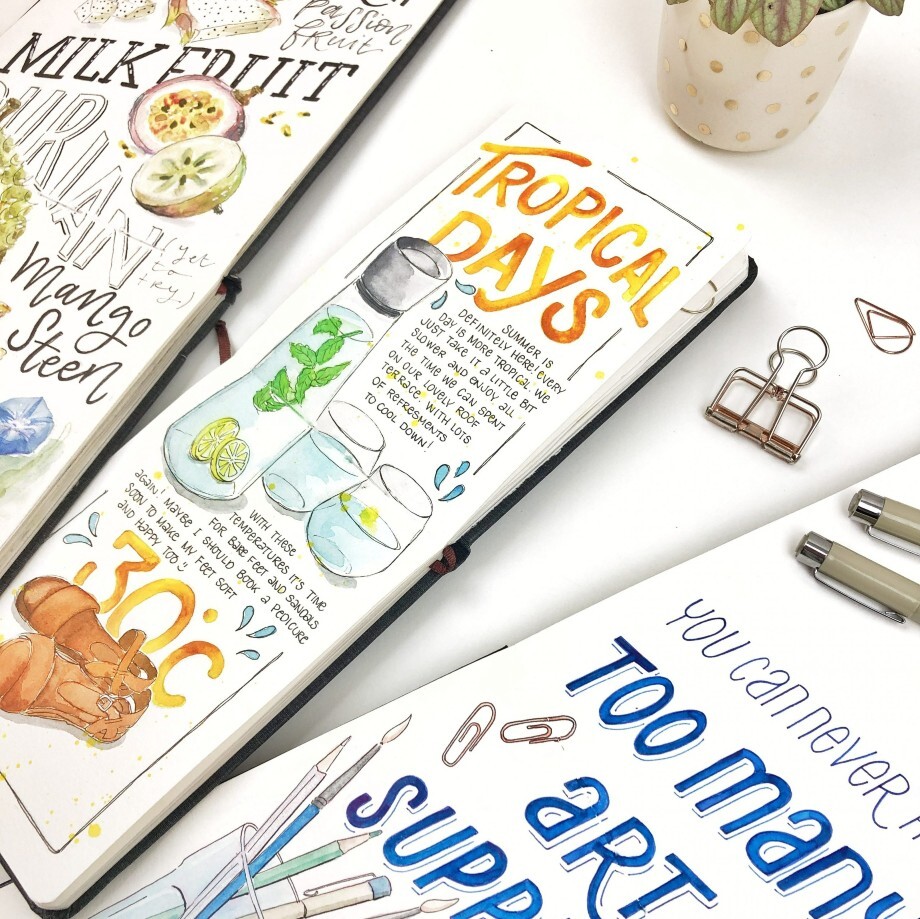 Passion
fruit
MILK FRUIT
(yet
to
try.)
Mango
Steen
TROPICAL
DAYS
SUMMER IS
DEFINITELY HERE. EVERY
DAY IS MORE TROPICAL. WE
JUST TAKE IT A LITTLE BIT
SLOWER AND ENJOY ALL
THE TIME WE CAN SPENT
ON OUR LOVELY ROOF
TERRACE, WITH LOTS
OF REFRESMENTS
TO COOL DOWN!
WITH THESE
TEMPERATURES IT'S TIME
FOR BARE FEET AND SANDALS
AGAIN! MAYBE I SHOULD BOOK A PEDICURE
SOON TO MAKE MY FEET SOFT
AND HAPPY TOO!!
30°C
YOU can never
TOO many
aRT
SUPP